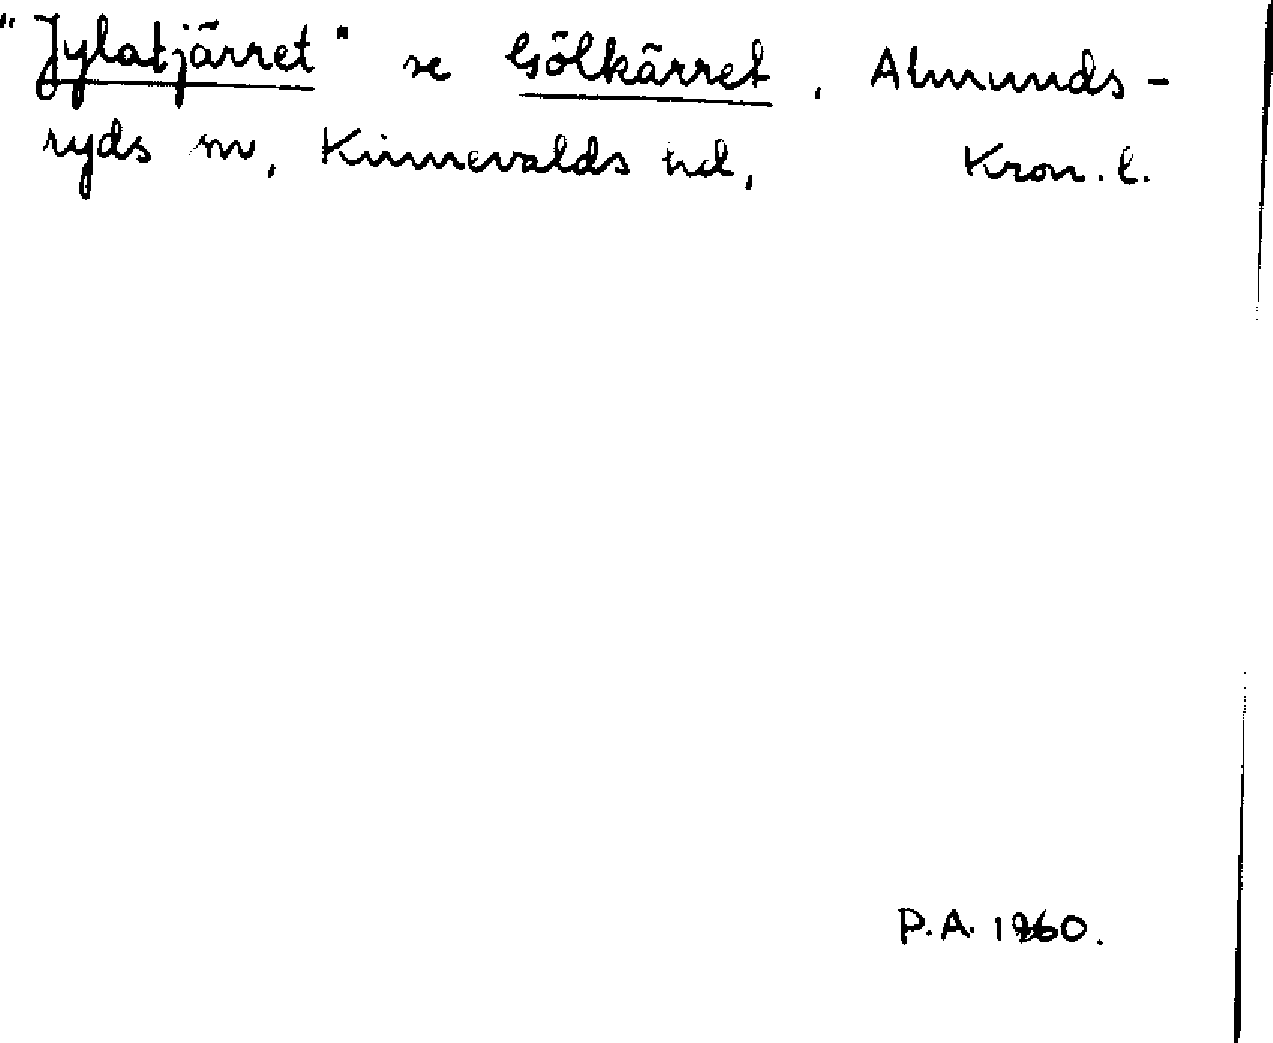 "Jylatjärret" se Gölkärret, Almunds-
ryds sn, Kinnevalds hd, Kron. l.
P.A. 1960.